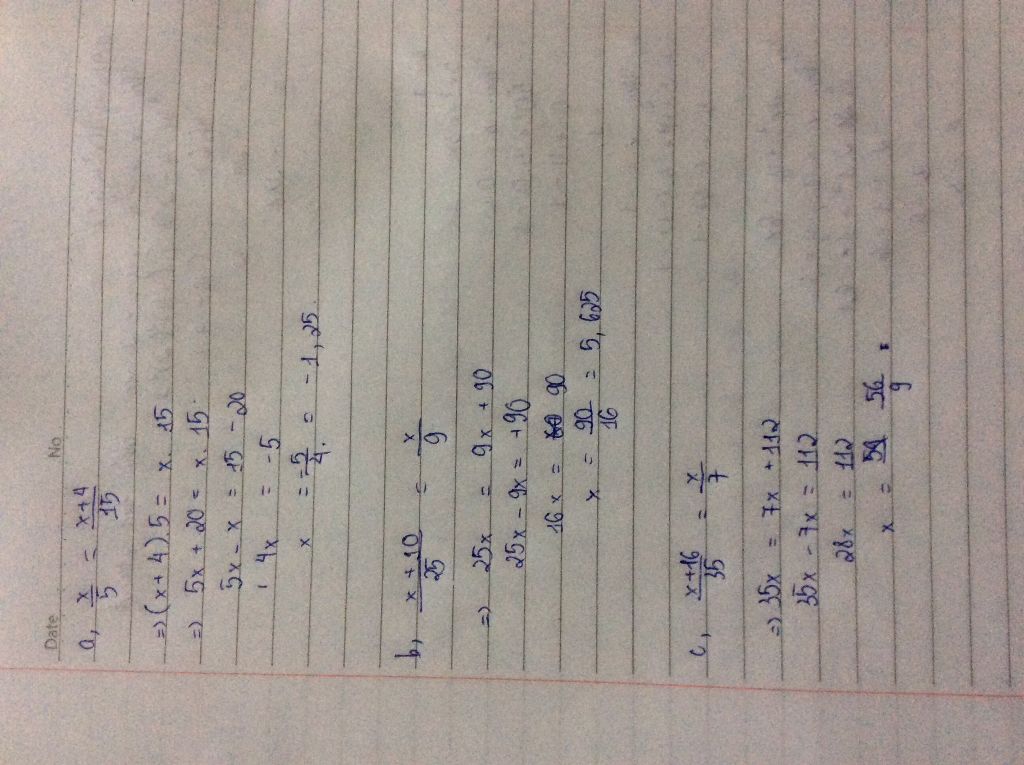 Date No
a, x/5 = x+4/15
=) (x+4).5 = x. 15
=) 5x + 20 = x. 15.
5x - x = 15 - 20
4x = -5
x = -5/4. = -1,25.
b, x+10/25 = x/9
=) 25x = 9x + 90
25x - 9x = +90
16x = 90
x = 90/16 = 5,625
c, x+16/35 = x/7
=) 35x = 7x + 112
35x - 7x = 112
28x = 112
x = 56/9